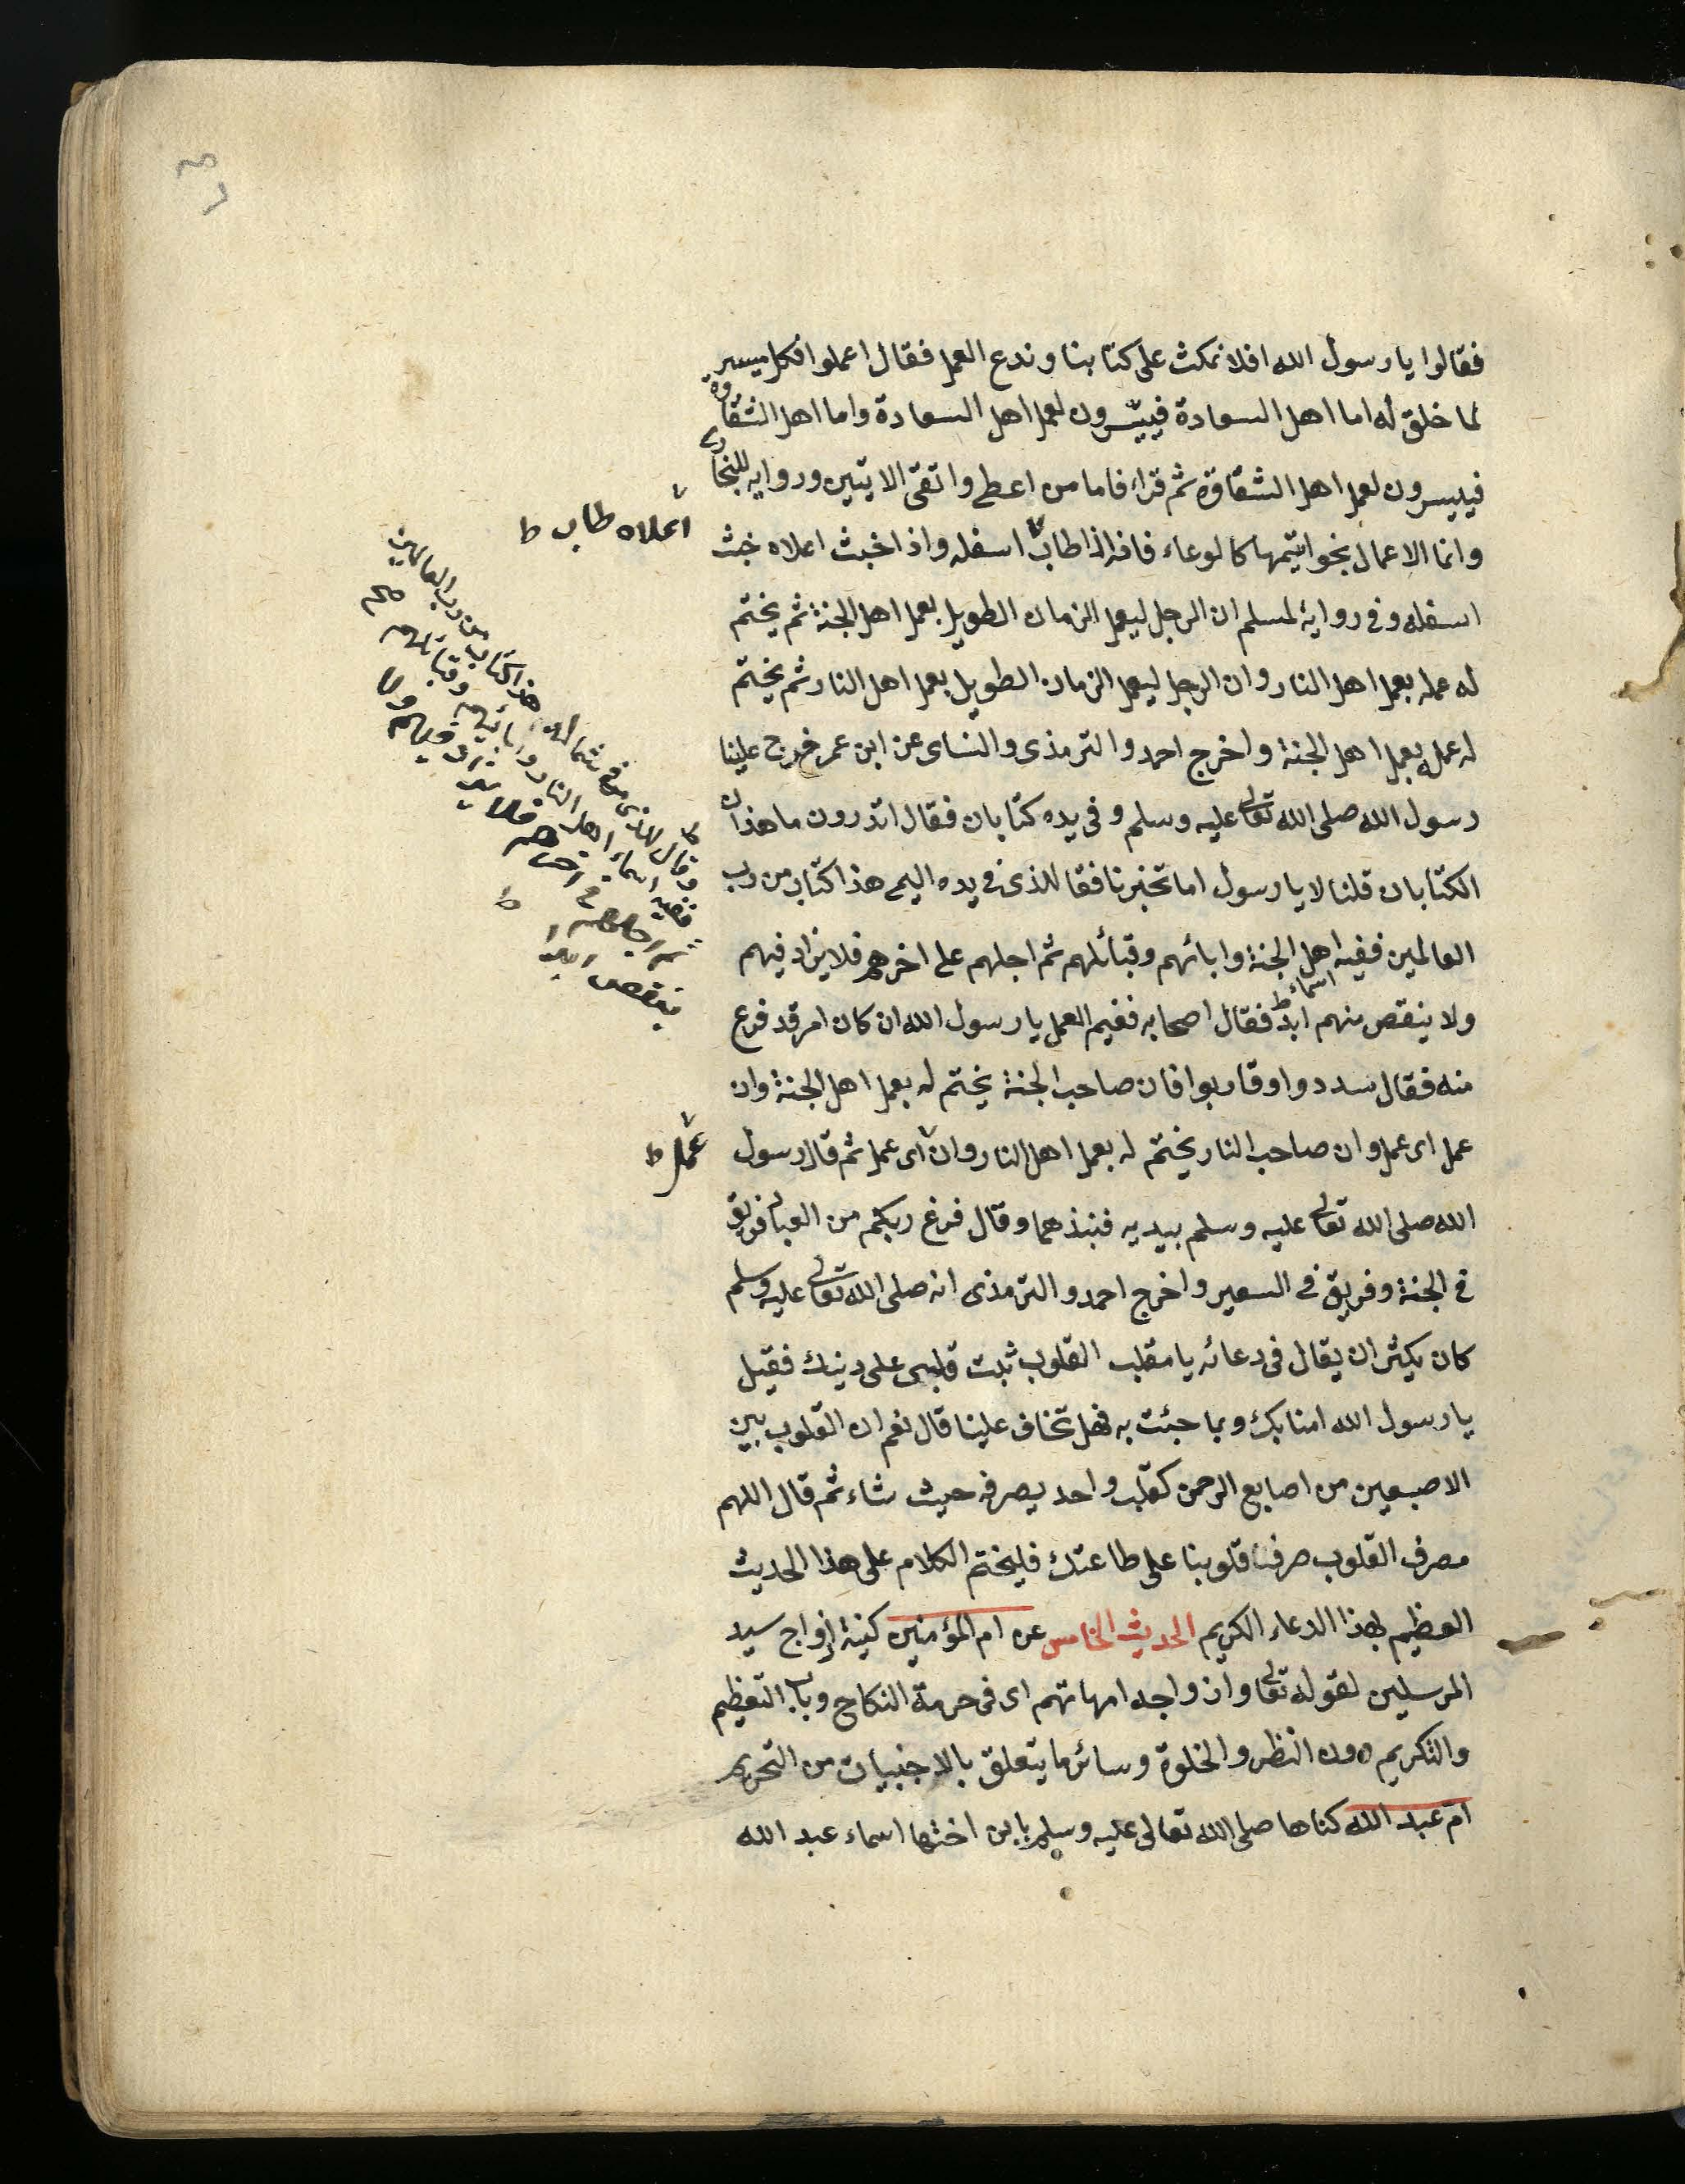 فقالوا يا رسول الله افلا نمكث على كتابنا وندع العمل فقال اعملوا فكل ميسر
لما خلق له اما اهل السعادة فييسرون لعمل اهل السعادة واما اهل الشقاوة
فييسرون لعمل اهل الشقاوة ثم قراء فاما من اعطى واتقى الايتين ورواية للبخارى
وانما الاعمال بخواتيمها كالوعاء فانه اذا طاب اسفله واذا خبث اعلاه خبث
اعلاه طاب ط
اسفله وفى رواية لمسلم ان الرجل ليعمل الزمان الطويل بعمل اهل الجنة ثم يختم
له عمله بعمل اهل النار وان الرجل ليعمل الزمان الطويل بعمل اهل النار ثم يختم
له عمله بعمل اهل الجنة واخرج احمد والترمذى والنساى عن ابن عمر خرج علينا
رسول الله صلى الله تعالى عليه وسلم وفى يده كتابان فقال اتدرون ما هذان
الكتابان قلنا لا يا رسول اما تخبرنا فقا للذى فى يده اليمى هذا كتاب من رب
العالمين ففيه اهل الجنة وابائهم وقبائلهم ثم اجلهم على اخرهم فلا يزاد فيهم
اسماء ط
ولا ينقص منهم ابدا فقال اصحابه ففيم العمل يا رسول الله ان كان امر قد فرع
منه فقال سددوا وقاربوا فان صاحب الجنة يختم له بعمل اهل الجنة وان
عمل اى عمل وان صاحب النار يختم له بعمل اهل النار وان اى عمل ثم قال رسول
عمل ط
الله صلى الله تعالى عليه وسلم بيديه فنبذهما وقال فرغ ربكم من العباد فريق
فى الجنة وفريق فى السعير واخرج احمد والترمذى انه صلى الله تعالى عليه وسلم
كان يكثر ان يقال فى دعائه يا مقلب القلوب ثبت قلبى على دينك فقيل
يا رسول الله امنا بك وبما جئت به فهل تخاف علينا قال نعم ان القلوب بين
الاصبعين من اصابع الرحمن كقلب واحد يصرفه حيث شاء ثم قال اللهم
مصرف القلوب صرفنا قلوبنا على طاعتك فليختم الكلام على هذا الحديث
العظيم بهذا الدعاء الكريم الحديث الخامس عن ام المؤمنين كنية ازواج سيد
المرسلين لقوله تعالى وازواجه امهاتهم اى فى حرمة النكاح وباب التعظيم
والتكريم دون النظر والخلوة وسائر ما يتعلق بالاجنبيات من التحريم
ام عبد الله كناها صلى الله تعالى عليه وسلم بابن اختها اسماء عبد الله
قال للذى فى شماله هذا كتاب من رب العالمين
فيه اسماء اهل النار وابائهم وقبائلهم
اخرهم فلا يزاد فيهم ولا
ينقص ابدا ط